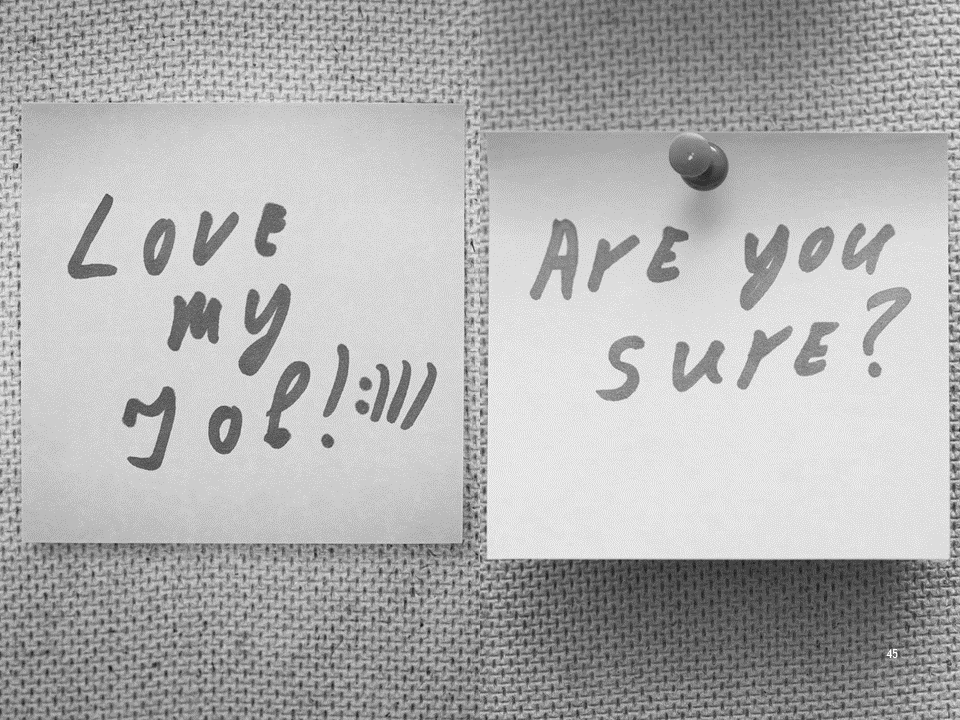 Love
my
Job!:)))
Are you
sure?
45